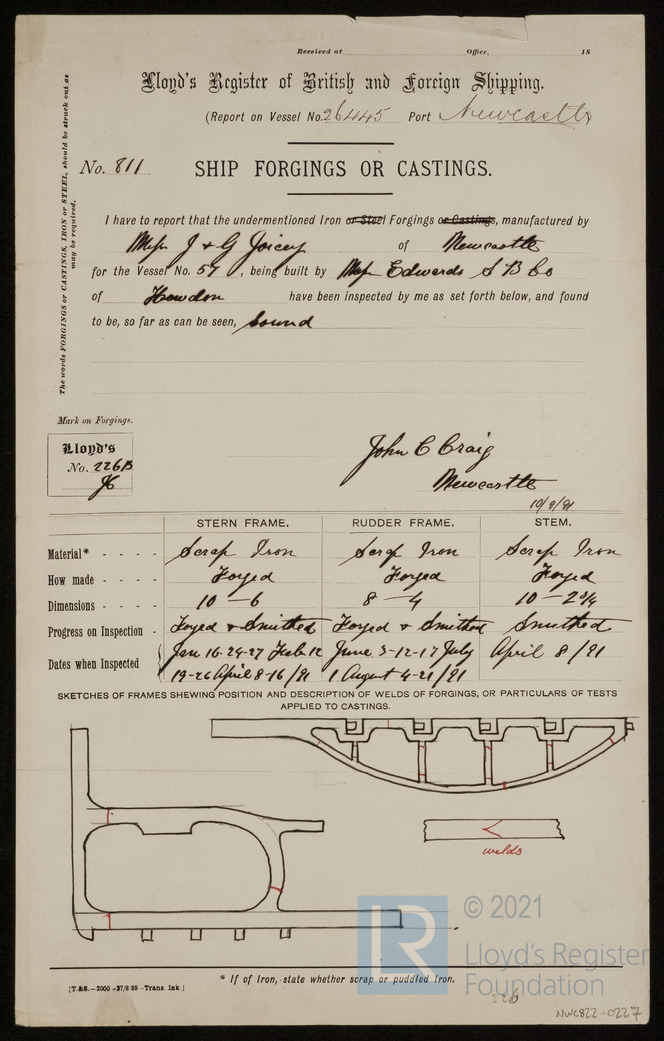 Received at Office, 18
Lloyd's Register of British and Foreign Shipping.
(Report on Vessel No. 26445 Port Newcastle
No. 811
SHIP FORGINGS OR CASTINGS.
The words FORGINGS or CASTINGS, IRON or STEEL, should be struck out as
may be required.
I have to report that the undermentioned Iron or Steel Forgings or Castings, manufactured by
Mess J & G Joicey of Newcastle
for the Vessel No. 57, being built by Mess Edwards S B Co
of Howdon have been inspected by me as set forth below, and found
to be, so far as can be seen, Sound
Mark on Forgings.
Lloyd's
No. 226B
JC
John C Craig
Newcastle
10/8/91
STERN FRAME. RUDDER FRAME. STEM.
Material* - - - - Scrap Iron Scrap Iron Scrap Iron
How made - - - - Forged Forged Forged
Dimensions - - - - 10 – 6 8 – 4 10 – 2 3/4
Progress on Inspection - Foged & Smithed Forged & Smithed Smithed
Dates when Inspected Jan 16-24-27 Feb 12 June 3-12-17 July April 8/91
19-26 April 8-16/91 1 August 4-21/91
SKETCHES OF FRAMES SHEWING POSITION AND DESCRIPTION OF WELDS OF FORGINGS, OR PARTICULARS OF TESTS
APPLIED TO CASTINGS.
welds
LR
© 2021
Lloyd's Register
Foundation
* If of Iron, state whether scrap or puddled Iron.
[T.&S.—2000—27/8/89—Trans. Ink]
226
NWC822-0227